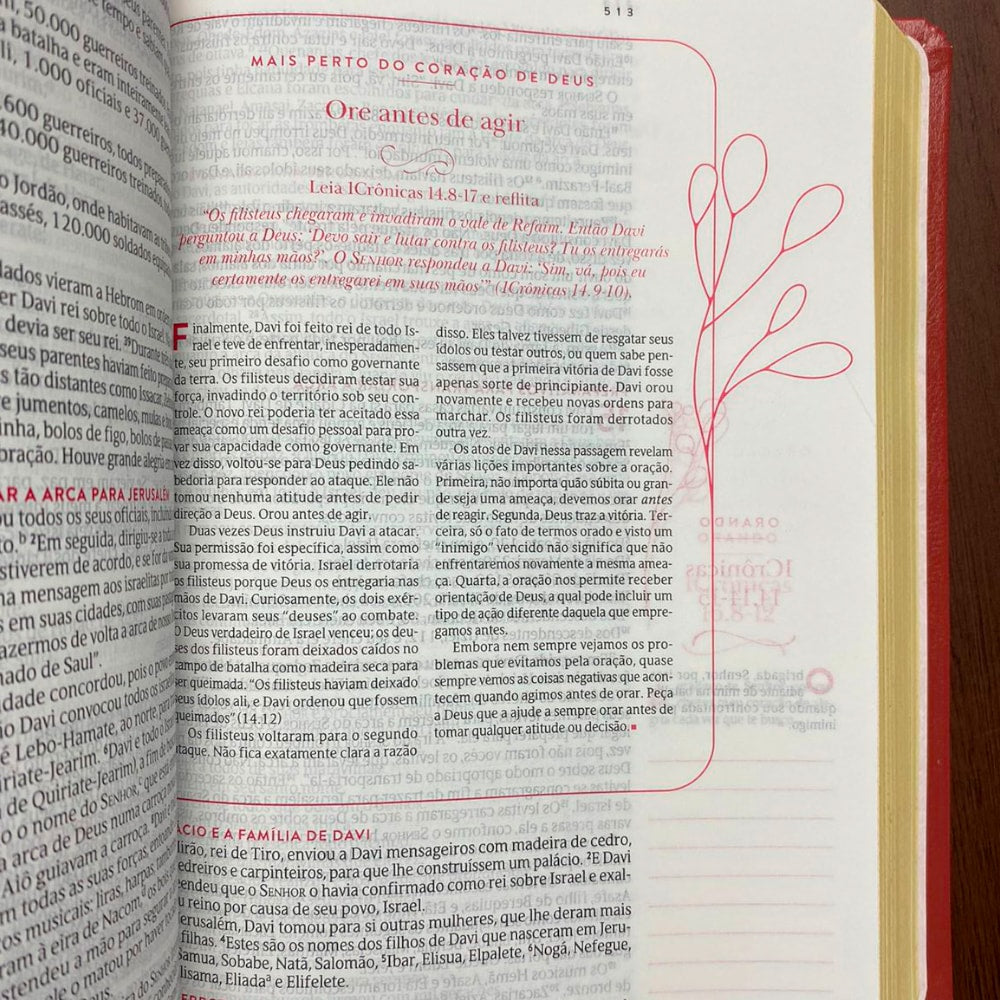 513
MAIS PERTO DO CORAÇÃO DE DEUS
Ore antes de agir
Leia 1Crônicas 14.8-17 e reflita
“Os filisteus chegaram e invadiram o vale de Refaim. Então Davi
perguntou a Deus: ‘Devo sair e lutar contra os filisteus? Tu os entregarás
em minhas mãos?’. O SENHOR respondeu a Davi: ‘Sim, vá, pois eu
certamente os entregarei em suas mãos’” (1Crônicas 14.9-10).
Finalmente, Davi foi feito rei de todo Is-
rael e teve de enfrentar, inesperadamen-
te, seu primeiro desafio como governante
da terra. Os filisteus decidiram testar sua
força, invadindo o território sob seu con-
trole. O novo rei poderia ter aceitado essa
ameaça como um desafio pessoal para pro-
var sua capacidade como governante. Em
vez disso, voltou-se para Deus pedindo sa-
bedoria para responder ao ataque. Ele não
tomou nenhuma atitude antes de pedir
direção a Deus. Orou antes de agir.
Duas vezes Deus instruiu Davi a atacar.
Sua permissão foi específica, assim como
sua promessa de vitória. Israel derrotaria
os filisteus porque Deus os entregaria nas
mãos de Davi. Curiosamente, os dois exér-
citos levaram seus “deuses” ao combate.
O Deus verdadeiro de Israel venceu; os deu-
ses dos filisteus foram deixados caídos no
campo de batalha como madeira seca para
ser queimada. “Os filisteus haviam deixado
seus ídolos ali, e Davi ordenou que fossem
queimados” (14.12)
Os filisteus voltaram para o segundo
ataque. Não fica exatamente clara a razão
disso. Eles talvez tivessem de resgatar seus
ídolos ou testar outros, ou quem sabe pen-
sassem que a primeira vitória de Davi fosse
apenas sorte de principiante. Davi orou
novamente e recebeu novas ordens para
marchar. Os filisteus foram derrotados
outra vez.
Os atos de Davi nessa passagem revelam
várias lições importantes sobre a oração.
Primeira, não importa quão súbita ou gran-
de seja uma ameaça, devemos orar antes
de reagir. Segunda, Deus traz a vitória. Ter-
ceira, só o fato de termos orado e visto um
“inimigo” vencido não significa que não
enfrentaremos novamente a mesma amea-
ça. Quarta, a oração nos permite receber
orientação de Deus, a qual pode incluir um
tipo de ação diferente daquela que empre-
gamos antes.
Embora nem sempre vejamos os pro-
blemas que evitamos pela oração, quase
sempre vemos as coisas negativas que acon-
tecem quando agimos antes de orar. Peça
a Deus que a ajude a sempre orar antes de
tomar qualquer atitude ou decisão.
ÁCIO E A FAMÍLIA DE DAVI
Hirão, rei de Tiro, enviou a Davi mensageiros com madeira de cedro,
pedreiros e carpinteiros, para que lhe construíssem um palácio. ²E Davi
endeu que o SENHOR o havia confirmado como rei sobre Israel e exal-
u reino por causa de seu povo, Israel.
Jerusalém, Davi tomou para si outras mulheres, que lhe deram mais
filhas. ⁴Estes são os nomes dos filhos de Davi que nasceram em Jeru-
Samua, Sobabe, Natã, Salomão, ⁵Ibar, Elisua, Elpalete, ⁶Nogá, Nefegue,
lisama, Eliadaª e Elifelete.
50.000 guerreiros treinados
batalha e eram inteiramente
li, 1.000 oficiais e 37.000
.600 guerreiros, todos
40.000 guerreiros treinados
o Jordão, onde habitavam as
assés, 120.000 soldados
dados vieram a Hebrom em
er Davi rei sobre todo o Israel
devia ser seu rei. ³⁹Durante
seus parentes haviam feito
s tão distantes como Issacar,
e jumentos, camelos, mulas e
inha, bolos de figo, bolos de
oração. Houve grande alegria
AR A ARCA PARA JERUSALÉM
ou todos os seus oficiais,
to.ᵇ ²Em seguida, dirigiu-se a
estiverem de acordo, e se for da
ma mensagem aos israelitas por
s em suas cidades, com suas
azermos de volta a arca de
nado de Saul”.
idade concordou, pois o povo
o Davi convocou todos os
é Lebo-Hamate, ao norte, para
iriate-Jearim. ⁶Davi e todo o
de Quiriate-Jearim), a fim de
o o nome do SENHOR,ᶜ que
a arca de Deus numa carroça
Aiô guiavam a carroça. ⁸Davi e
m todas as suas forças,
os musicais: liras, harpas,
ram à eira de Nacom,
stendeu a mão para segurar
o matou por haver